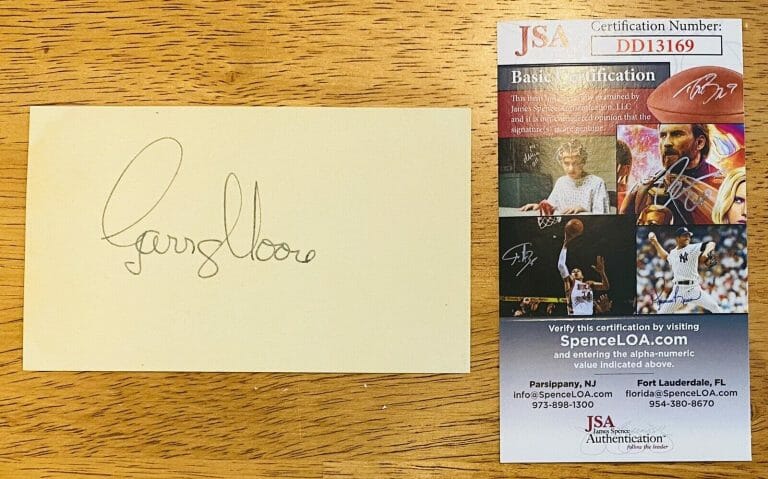 Garry Moore
JSA
Certification Number:
DD13169
Basic Certification
This item has been examined by
James Spence Authentication, LLC
and it is our considered opinion that the
signature(s) is/are genuine.
Verify this certification by visiting
SpenceLOA.com
and entering the alpha-numeric
value indicated above.
Parsippany, NJ
info@SpenceLOA.com
973-898-1300
Fort Lauderdale, FL
florida@SpenceLOA.com
954-380-8670
JSA
James Spence
Authentication
follow the leader